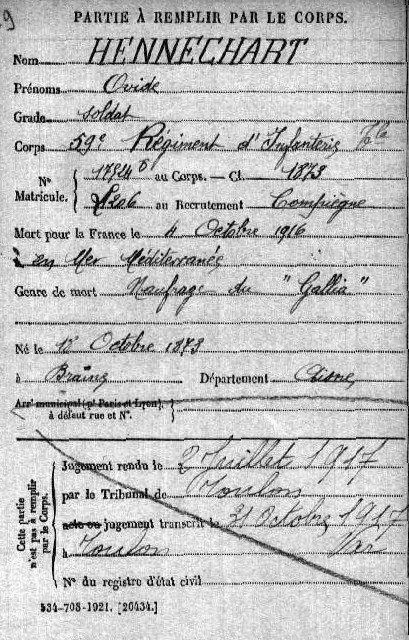 PARTIE À REMPLIR PAR LE CORPS.
Nom HENNECHART
Prénoms Ovide
Grade Soldat
Corps 59e Régiment d'Infanterie Tle
No Matricule. { 17524 au Corps. — Cl. 1873
1206 au Recrutement Compiègne
Mort pour la France le 4 Octobre 1916
à en Mer Méditerranée
Genre de mort Naufrage du "Gallia"
Né le 12 Octobre 1873
à Braine Département Aisne
Arrt municipal (pr Paris et Lyon), à défaut rue et No.
Cette partie n'est pas à remplir par le Corps.
Jugement rendu le 2 Juillet 1917
par le Tribunal de Toulon
acte ou jugement transcrit le 31 Octobre 1917
à Toulon Var
No du registre d'état civil
534-708-1921. [26434.]